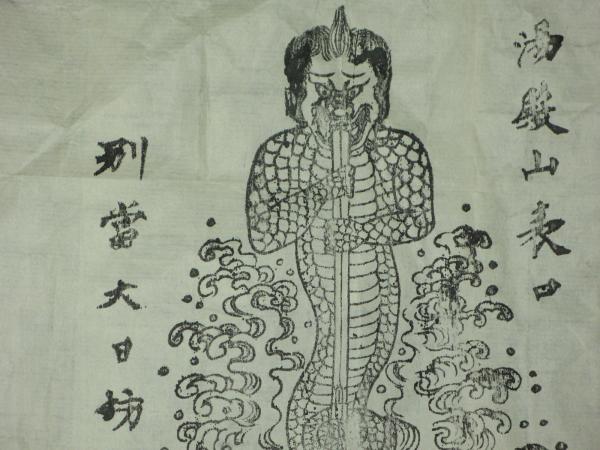 湯殿山表口
別當大日坊